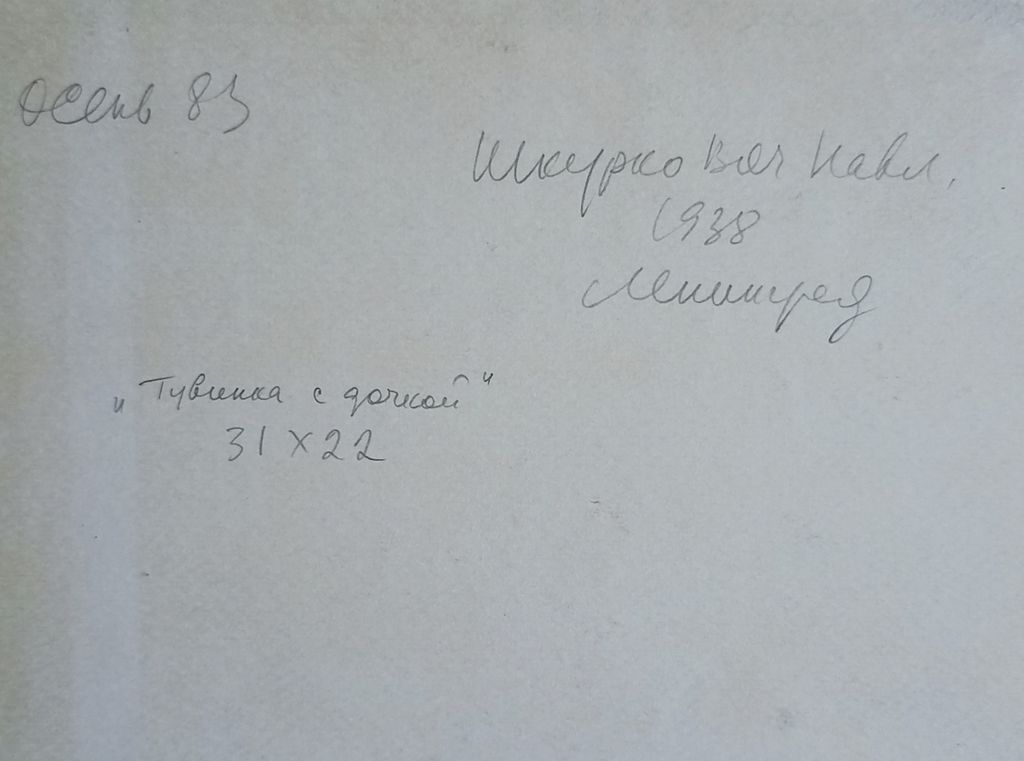 Осень 83
Шкурко Вяч Павл.
1938
Ленинград
„Тувинка с дочкой"
31х22